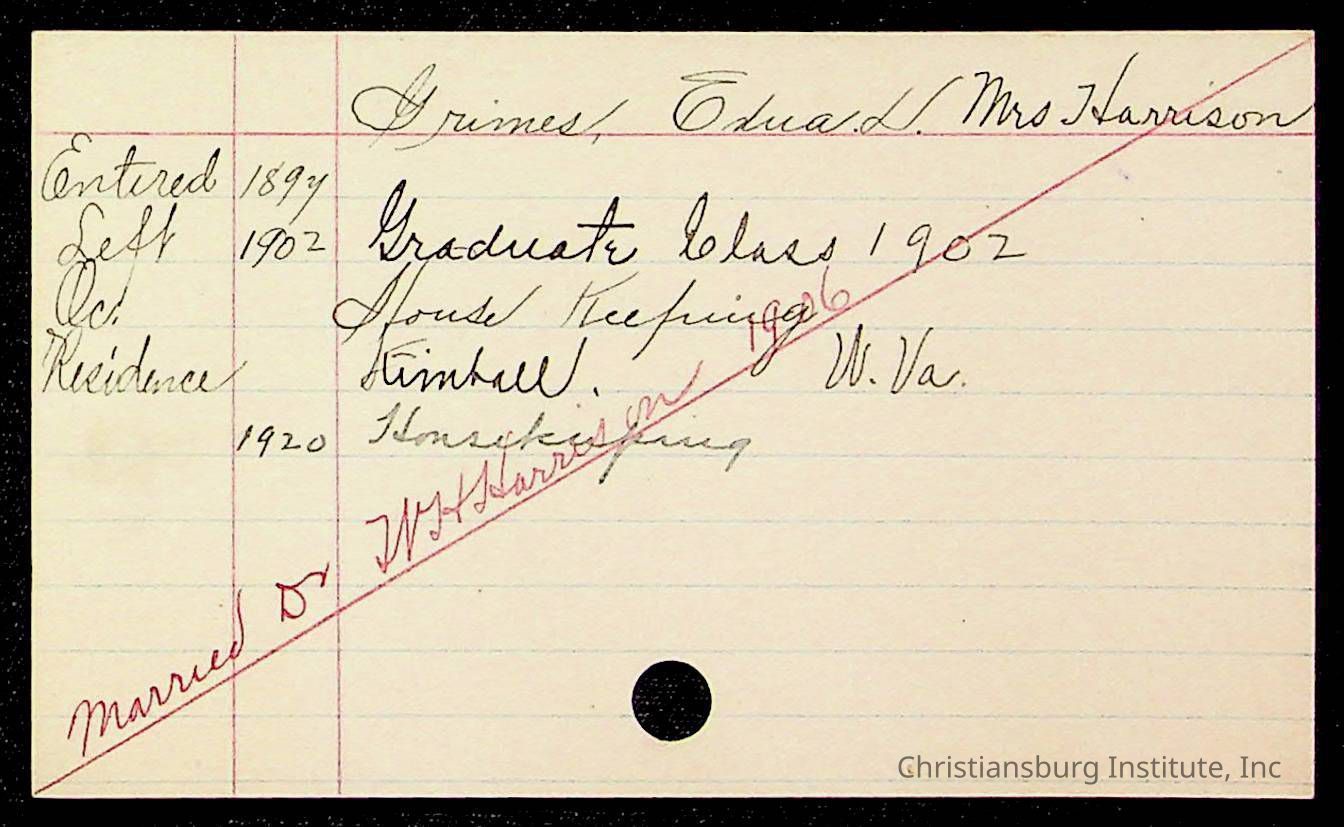 Grimes, Edna. L. Mrs Harrison
Entered 1897
Left 1902 Graduate Class 1902
Oc. House Keeping
Residence Kimball. W. Va.
1920 Housekeeping
Married Dr W H Harrison 1906
Christiansburg Institute, Inc